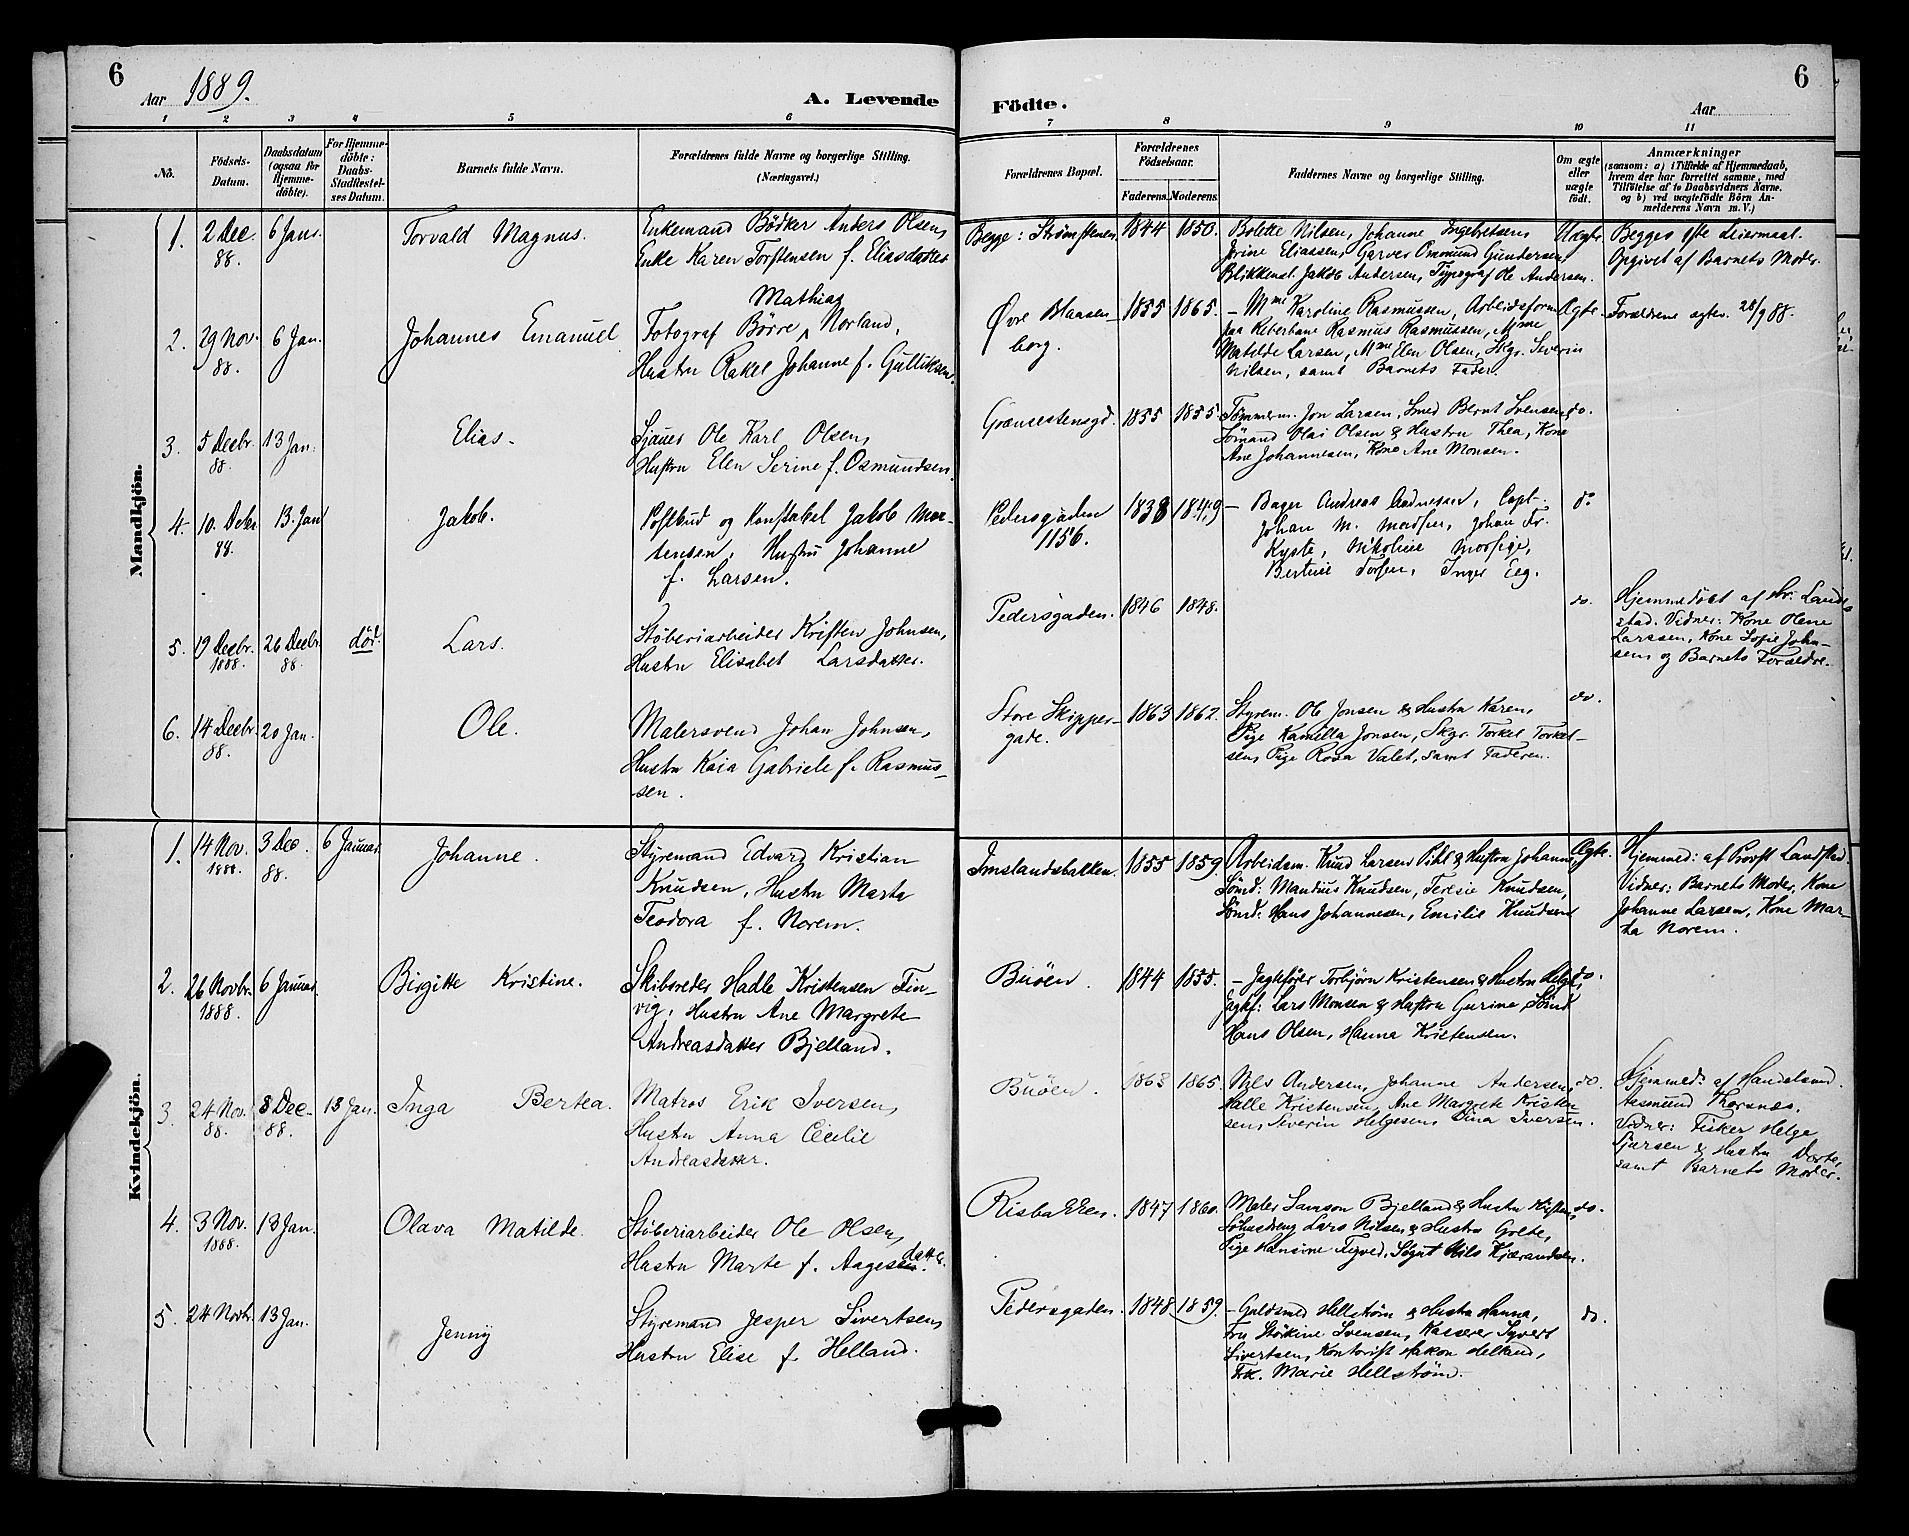 6
Aar 1889.
A. Levende
Födte.
Aar
6
1 2 3 4 5 6 7 8 9 10 11
Nö.
Födsels-Datum.
Daabsdatum (ogsaa for Hjemme-döbte).
For Hjemme-döbte: Daabs-Stadfæstel-ses Datum.
Barnets fulde Navn.
Forældrenes fulde Navne og borgerlige Stilling.
(Næringsvei.)
Forældrenes Bopæl.
Forældrenes Födselsaar.
Faderens. Moderens.
Faddernes Navne og borgerlige Stilling.
Om ægte eller uægte født.
Anmærkninger
(saasom: a) i Tilfælde af Hjemmedaab, hvem der har forrettet samme, med Tilföielse af to Daabsvidners Navne, og b) ved uægtefödte Börn An-melderens Navn m. V.)
Mandkjön.
1. 2 Dec. 88. 6 Janr. Torvald Magnus.
Enkemand Bödker Anders Olsen,
Enke Karen Torstensen f. Eliasdatter
Begge: Strømstenen. 1844 1850.
Bolette Nilsen, Johanne Ingebretsen,
Jorine Eliassen, Garver Ommund Gundersen,
Blikkensl. Jakob Andersen, Typograf Ole Andersen.
Uægte.
Begges 1ste Leiermaal.
Opgivet af Barnets Moder.
2. 29 Nov. 88. 6 Jan. Johannes Emanuel
Mathias
Fotograf Börre Norland,
Hustru Rakel Johanne f. Gulliksen.
Øvre Blaasenborg. 1855 1865.
– Mme Karoline Rasmussen, Arbeidsform.
paa Reberbane Rasmus Rasmussen, Mme
Matilde Larsen, Mme Elen Olsen, Skgr. Severin
Nilsen, samt Barnets Fader.
Ægte.
Forældrene ægtev. 28/9 88.
3. 5 Decbr. 88. 13 Jan. Elias.
Sjauer Ole Karl Olsen,
Hustru Elen Serine f. Osmundsen.
Grænsestensgd. 1855 1855.
Tømmerm. Jon Larsen, Smed Bernt Svensen,
Sømand Olai Olsen & Hustru Thea, Kone
Ane Johannesen, Kone Ane Monsen.
do.
4. 10. Decbr. 88. 13. Jan Jakob.
Postbud og Konstabel Jakob Mor-
tensen, Hustru Johanne
f. Larsen.
Pedersgaden 1156. 1838 1849
– Bager Andreas Aadnesen, Capt.
Johan M. Madsen, Johan Fr.
Kyste, Nikoline
Inger Eeg.
do
5. 19 Decbr. 1888. 26 Decbr. 88. död. Lars.
Støberiarbeider Kristen Johnsen,
Hustru Elisabet Larsdatter.
Pedersgaden. 1846 1848.
do.
Hjemmedöbt af Hr. Land-
stad. Vidner: Kone Olene
Larssen, Kone Sofie John-
sen og Barnets Forældre.
6. 14 Decbr. 88. 20 Jan. Ole.
Malersvend Johan Johnsen,
Hustru Kaia Gabriele f. Rasmus-
sen.
Store Skipper-
gade. 1863 1862.
Styrem. Ole Jonsen & Hustru Karen,
Pige Kamilla Jonsen, Skgr. Torkel Torkel-
sen, Pige Rosa Valet, samt Faderen.
do.
Kvindekjön.
1. 14 Nov. 1888. 3 Dec. 88. 6 Januar. Johanne.
Styremand Edvard Kristian
Knudsen, Hustru Marta
Teodora f. Norem.
Imslandsbakken. 1855 1859.
Arbeidsm. Knud Larsen Pihl & Hustru Johanne,
Sömd: Mandius Knudsen, Teresie Knudsen,
Sömd: Hans Johannesen, Emilie Knudsen
Ægte.
Hjemmed: af Provst Landstad.
Vidner: Barnets Moder, Kone
Johanne Larsen, Kone Mar-
ta Norem.
2. 26 Novbr. 1888. 6 Januar. Birgitte Kristine.
Skibsreder Hadle Kristensen Fin-
vig, Hustru Ane Margrete
Andreasdatter Bjelland.
Buöen. 1844 1855.
– Jegtefører Torbjörn Kristensen & Hustru Helga,
Jegtf: Lars Monsen & Hustru Gurine, Sömd
Hans Olsen, Hanna Kristensen.
do.
3. 24 Nov. 88. 8 Dec. 88. 13 Jan. Inga Bertea.
Matros Erik Iversen,
Hustru Anna Cecilie
Andreasdatter.
Buöen. 1863 1865.
Nels Andersen, Johanne Andersen,
Halle Kristensen, Ane Margrete Kristen
sen, Severin Helgesen, Dina Iversen.
do.
Hjemmed: af Handelsmd.
Aasmund Thorsnæs.
Vidner: Fisker Helge
Sjursen & Hustru Dorte,
samt Barnets Moder.
4. 3 Nov. 1888. 13 Jan. Olava Matilde.
Støberiarbeider Ole Olsen,
Hustru Marte f. Aagesdatter.
Risbakken. 1847 1860.
Maler Samson Bjelland & Hustru
Lars Nilsen & Hustru Grete,
Pige Hansine Tigved, Sogut Nils Kjærandsen.
do.
5. 24 Novbr. 13 Jan. Jenny
Styremand Jesper Sivertsen,
Hustru Elise f. Helland.
Pedersgaden. 1848. 1859.
– Guldsmed Hellström & Hustru Hanna,
Fru Stökine Svensen, Kasserer Syvert
Sivertsen, Kontorist Hakon Helland,
Frk. Marie Hellström.
do.